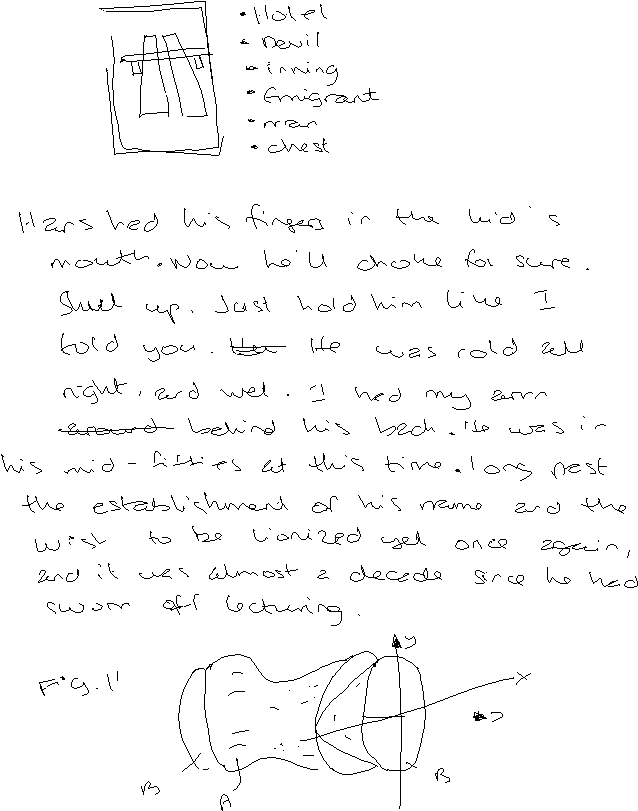 • Hotel
• Devil
• inning
• Emigrant
• man
• chest
Hans had his fingers in the kid's
mouth. Now he'll choke for sure.
Shut up. Just hold him like I
told you. He was cold all
right, and wet. I had my arm
around behind his back. He was in
his mid-fifties at this time. long past
the establishment of his name and the
wish to be lionized yet once again,
and it was almost a decade since he had
sworn off lecturing.
Fig. 1'
y
x
B
A
B